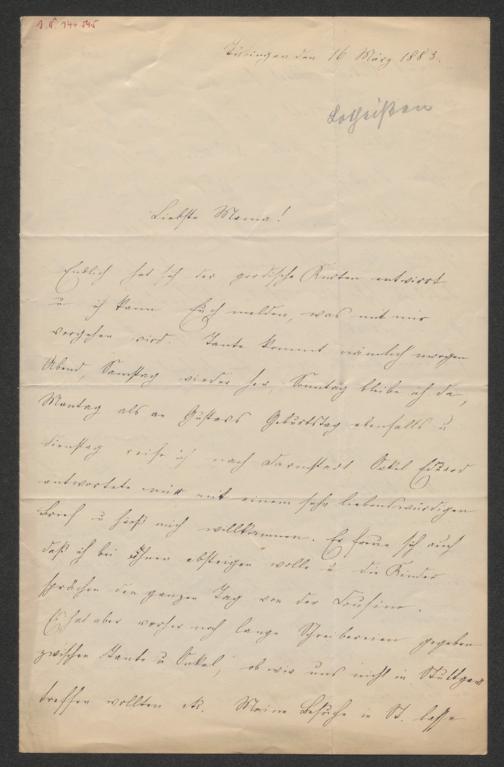 Tübingen den 16 März 1883.
Lotheißen
Liebste Mama!
Endlich hat sich der gordische Knoten entwirrt
u. ich kann Euch melden, was mit mir
vorgehen wird. Tante kommt nämlich morgen
Abend, Samstag wieder her, Sonntag bleibe ich da,
Montag als an Gustavs Geburtstag ebenfalls u
Dienstag reise ich nach Darmstadt. Onkel Eduard
antwortete mir mit einem sehr liebenswürdigen
Brief u hieß mich willkommen. Er freue sich auch
daß ich bei Ihnen absteigen wolle u die Kinder
sprächen den ganzen Tag von der Cousine.
Es hat aber vorher noch lange Schreibereien gegeben
zwischen Tante u Onkel, ob wir uns nicht in Stuttgart
treffen wollten etc. Meine Besuche in St. lasse